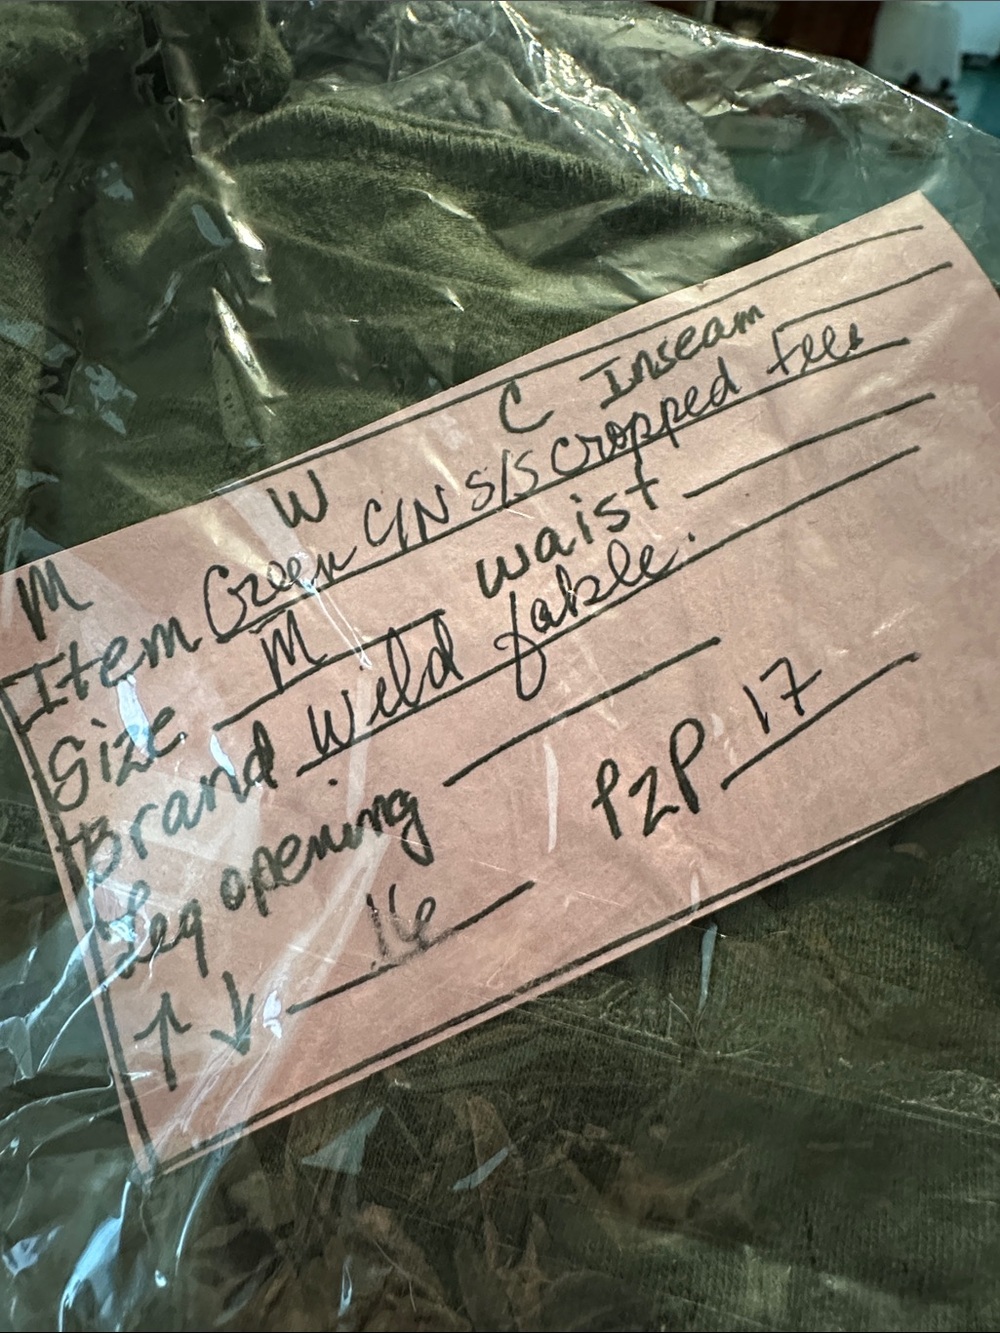 M W C Inseam
Item Green C/N S/S Cropped tees
Size M waist
Brand Wild fable.
Leg opening
↑ ↓ 16 P2P 17